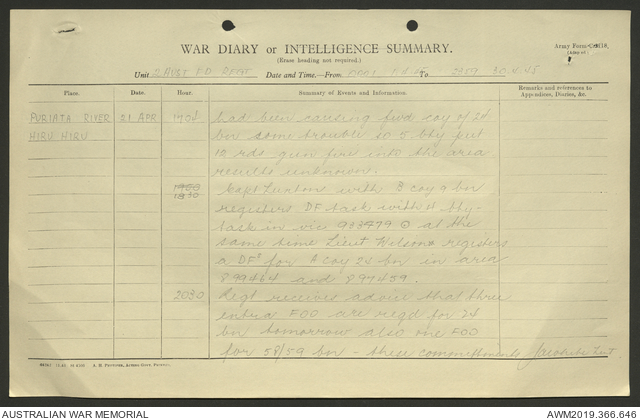 WAR DIARY or INTELLIGENCE SUMMARY.
(Erase heading not required.)
Army Form C.2118.
(Adapted)
Unit 2 AUST FD REGT Date and Time—From 0001 1.4.45 To 2359 30.4.45
Place. Date. Hour. Summary of Events and Information. Remarks and references to Appendices, Diaries, &c.
PURIATA RIVER 21 APR 1704 had been causing fwd coy of 24
HIRU HIRU bn some trouble so 5 bty put
12 rds gun fire into the area
results unknown.
Capt with B coy 9 bn
1830 registers DF task with bty
task in vic at the
same time Lieut Wilson registers
a DF's for A coy 24 bn in area
899464 and 897459.
2030 Regt receives advice that three
extra FOO are reqd for 24
bn tomorrow also one FOO
for 58/59 bn - these commitments
A. H. Pettifer, Acting Govt. Printer.
AUSTRALIAN WAR MEMORIAL
AWM2019.366.646